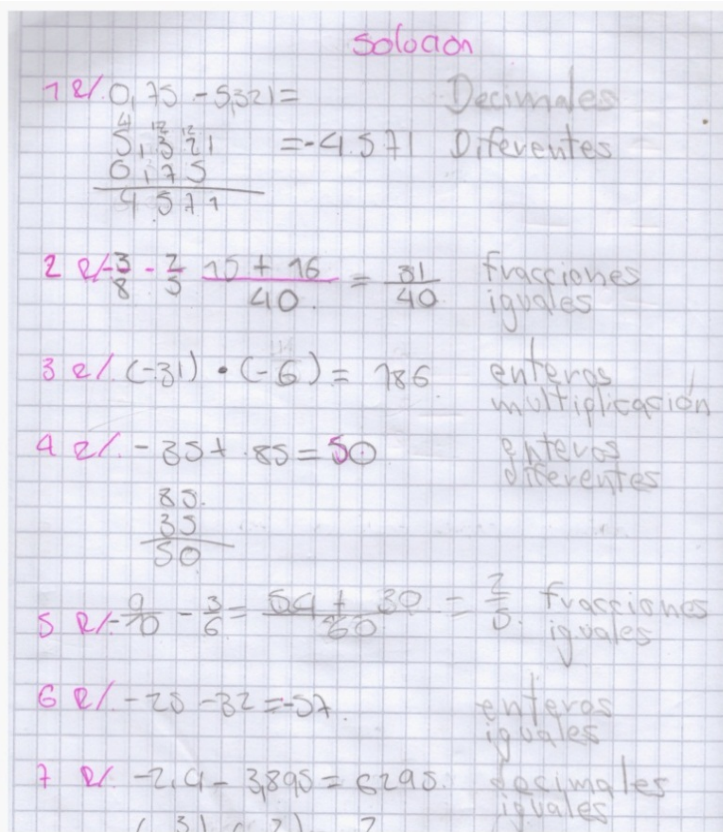 Solocion
1 R/. 0,75 - 5,321 = Decimales
4 12 12
5,321 = -4.571 Diferentes
0,75
4.571
2 R/ -3/8 - 2/5 15 + 16 / 40 = 31/40 fracciones iguales
3 R/. (-31) • (-6) = 186 enteros multiplicación
4 R/. -35 + 85 = 50 enteros diferentes
85.
35
50
5 R/ -9/10 - 3/6 = 54 + 30 / 60 = 2/5. fracciones iguales
6 R/. -25 - 32 = -57. enteros iguales
7 R/. -2,4 - 3,895 = 6295. decimales iguales